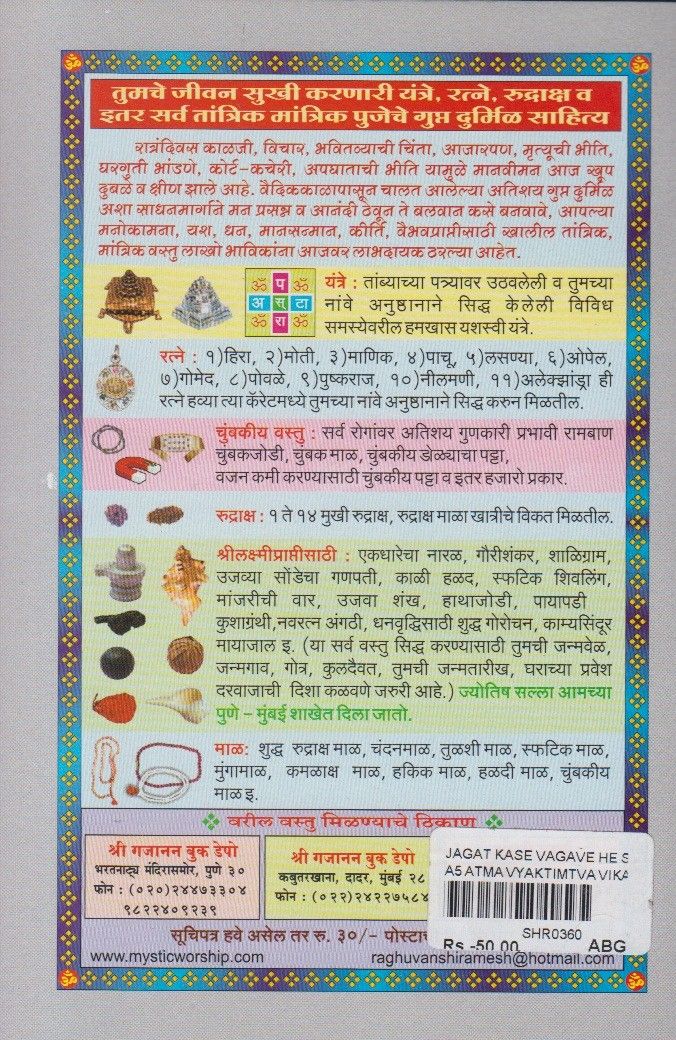 तुमचे जीवन सुखी करणारी यंत्रे, रत्ने, रुद्राक्ष व
इतर सर्व तांत्रिक मांत्रिक पुजेचे गुप्त दुर्मिळ साहित्य
रात्रंदिवस काळजी, विचार, भवितव्याची चिंता, आजारपण, मृत्यूची भीति,
घरगुती भांडणे, कोर्ट-कचेरी, अपघाताची भीति यामुळे मानवीमन आज खूप
दुबळे व क्षीण झाले आहे. वैदिककाळापासून चालत आलेल्या अतिशय गुप्त दुर्मिळ
अशा साधनमार्गाने मन प्रसन्न व आनंदी ठेवून ते बलवान कसे बनवावे. आपल्या
मनोकामना, यश, धन, मानसन्मान, कीर्ति, वैभवप्राप्तीसाठी खालील तांत्रिक,
मांत्रिक वस्तु लाखो भाविकांना आजवर लाभदायक ठरल्या आहेत.
ॐ प ॐ
अ स् टा
ॐ रा ॐ
यंत्रे : तांब्याच्या पत्र्यावर उठवलेली व तुमच्या
नांवे अनुष्ठानाने सिद्ध केलेली विविध
समस्येवरील हमखास यशस्वी यंत्रे.
रत्ने : १)हिरा, २)मोती, ३)माणिक, ४)पाचू, ५)लसण्या, ६)ओपेल,
७)गोमेद, ८)पोवळे, ९)पुष्कराज, १०)नीलमणी, ११)अलेक्झांड्रा ही
रत्ने हव्या त्या कॅरेटमध्ये तुमच्या नांवे अनुष्ठानाने सिद्ध करुन मिळतील.
चुंबकीय वस्तु : सर्व रोगांवर अतिशय गुणकारी प्रभावी रामबाण
चुंबकजोडी, चुंबक माळ, चुंबकीय डोळ्याचा पट्टा,
वजन कमी करण्यासाठी चुंबकीय पट्टा व इतर हजारो प्रकार.
रुद्राक्ष : १ ते १४ मुखी रुद्राक्ष, रुद्राक्ष माळा खात्रीचे विकत मिळतील.
श्रीलक्ष्मीप्राप्तीसाठी : एकधारेचा नारळ, गौरीशंकर, शाळिग्राम,
उजव्या सोंडेचा गणपती, काळी हळद, स्फटिक शिवलिंग,
मांजरीची वार, उजवा शंख, हाथाजोडी, पायापडी
कुशाग्रंथी,नवरत्न अंगठी, धनवृद्धिसाठी शुद्ध गोरोचन, काम्यसिंदूर
मायाजाल इ. (या सर्व वस्तु सिद्ध करण्यासाठी तुमची जन्मवेळ,
जन्मगाव, गोत्र, कुलदैवत, तुमची जन्मतारीख, घराच्या प्रवेश
दरवाजाची दिशा कळवणे जरुरी आहे.) ज्योतिष सल्ला आमच्या
पुणे – मुंबई शाखेत दिला जातो.
माळ: शुद्ध रुद्राक्ष माळ, चंदनमाळ, तुळशी माळ, स्फटिक माळ,
मुंगामाळ, कमळाक्ष माळ, हकिक माळ, हळदी माळ, चुंबकीय
माळ इ.
वरील वस्तु मिळण्याचे ठिकाण
श्री गजानन बुक डेपो
भरतनाट्य मंदिरासमोर, पुणे ३०
फोन : (०२०)२४४७३३०४
९८२२४०९२३९
श्री गजानन बुक डेपो
कबुतरखाना, दादर, मुंबई २८
फोन : (०२२)२४२२७५८४
JAGAT KASE VAGAVE HE S
A5 ATMA VYAKTIMTVA VIKA
SHR0360
Rs -50.00 ABG
सूचिपत्र हवे असेल तर रु. ३०/- पोस्टाच
www.mysticworship.com raghuvanshiramesh@hotmail.com